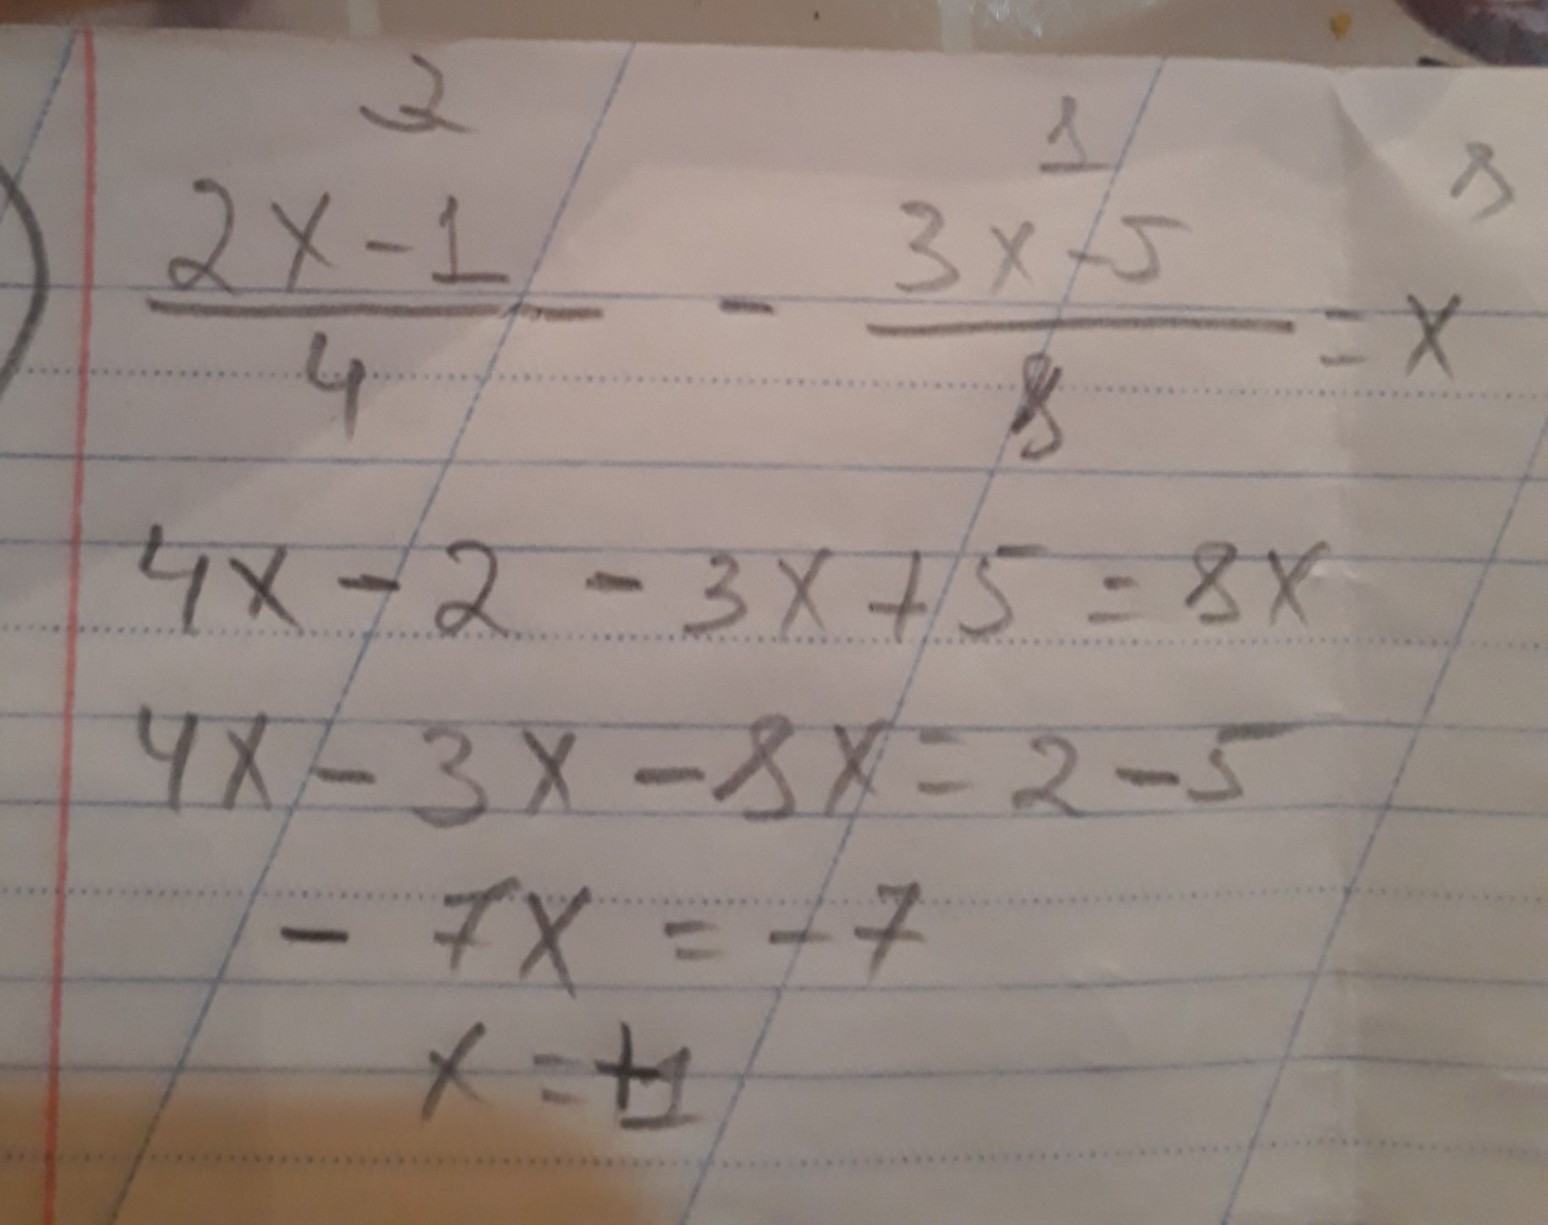 2 1 8
2x-1 - 3x-5 = x
4 8
4x - 2 - 3x + 5 = 8x
4x - 3x - 8x = 2 - 5
- 7x = -7
x = +1